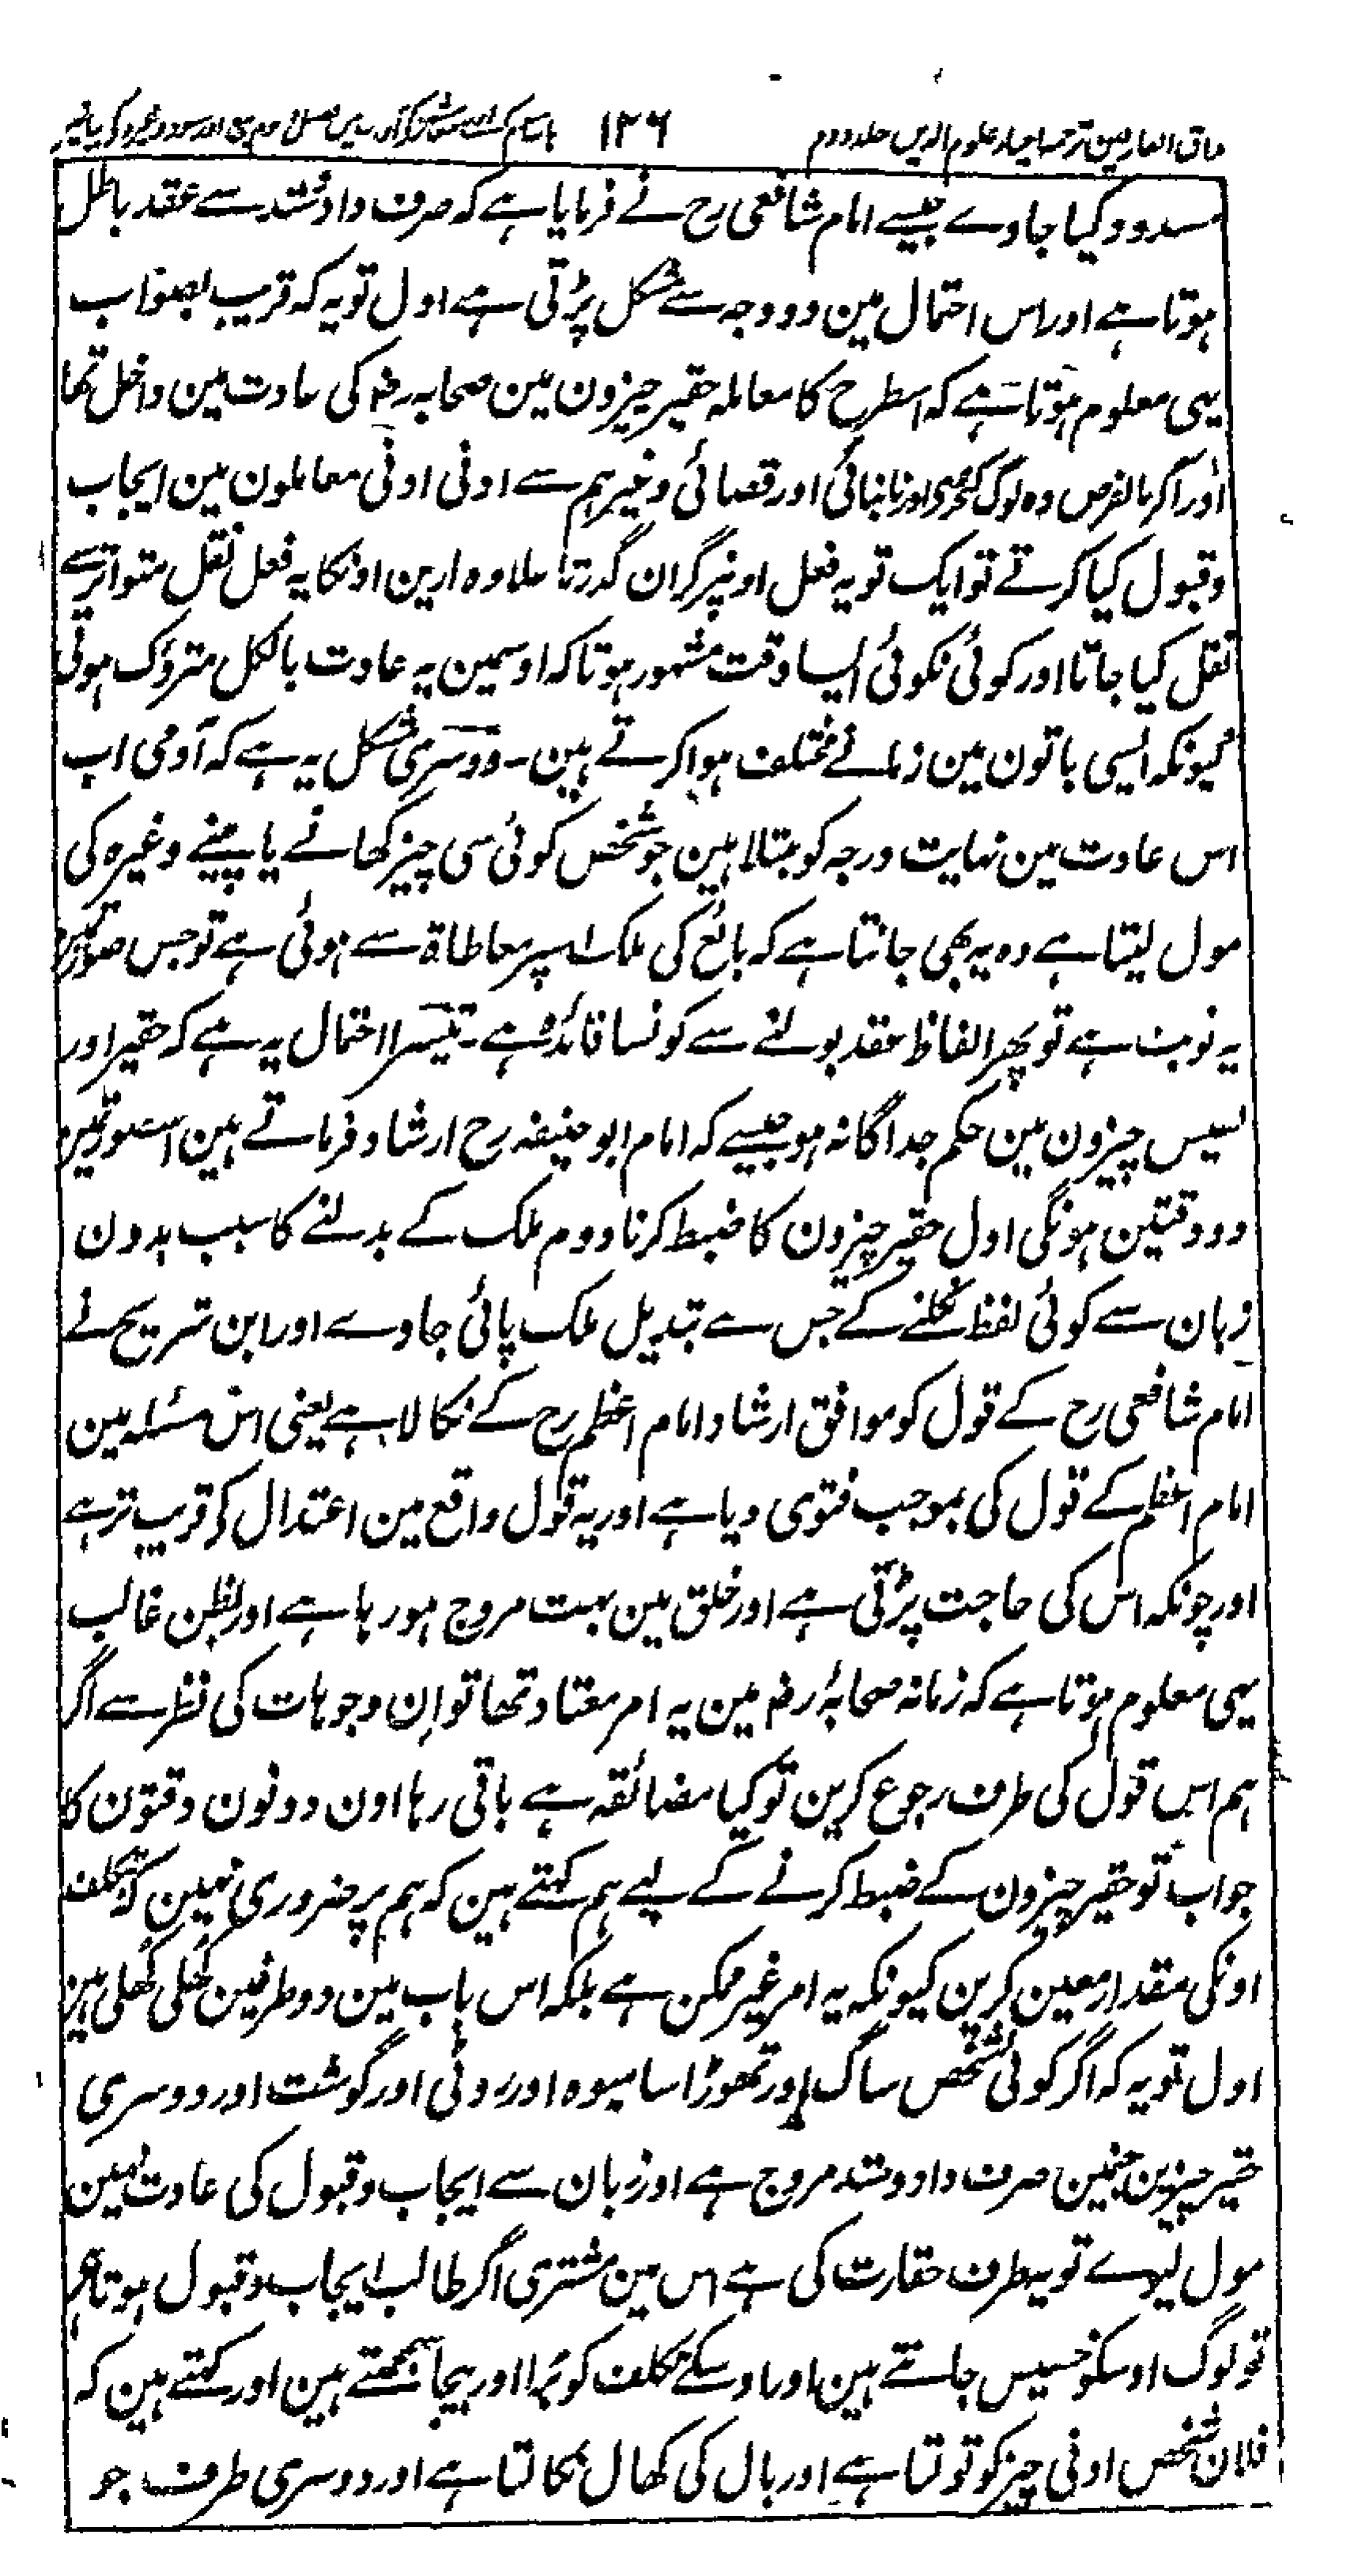 مذاق العارفین ترجمہ احیاء علوم الدین جلد دوم ۱۳۶
مسدود کیا جاوے جیسے امام شافعی رح نے فرمایا ہے کہ صرف دادستد سے عقد باطل
ہوتا ہے اور اس احتمال مین دو وجہ سے مشکل پڑتی ہے اول تو یہ کہ قریب بصواب
یہی معلوم ہوتا ہے کہ اسطرح کا معاملہ حقیر چیزون مین صحابہ رضہ کی عادت مین داخل تھا
اور اگر بالفرض وہ لوگ کنجڑے اور نانبائی اور قصائی وغیرہم سے ادنی ادنی معاملون مین ایجاب
و قبول کیا کرتے تو ایک تو یہ فعل اونپر گران گذرتا علاوہ ازین اونکا یہ فعل نقل متواتر سے
نقل کیا جاتا اور کوئی نکوئی ایسا وقت مشہور ہوتا کہ اوسمین یہ عادت بالکل متروک ہوئی
کیونکہ ایسی باتون مین زمانے مختلف ہوا کرتے ہین ۔ دوسری مشکل یہ ہے کہ آدمی اب
اس عادت مین نہایت درجہ کو مبتلا ہین جو شخص کوئی سی چیز کھانے یا پینے وغیرہ کی
مول لیتا ہے وہ یہ بھی جانتا ہے کہ بائع کی ملک اسپر معاطاۃ سے ہوئی ہے تو جس صورتمین
یہ نوبت ہے تو پھر الفاظ عقد بولنے سے کونسا فائدہ ہے ۔ تیسرا احتمال یہ ہے کہ حقیر اور
نفیس چیزون مین حکم جداگانہ ہو جیسے کہ امام ابو حنیفہ رح ارشاد فرماتے ہین اس صورتمین
دو دقتین ہونگی اول حقیر چیزون کا ضبط کرنا دوم ملک کے بدلنے کا سبب بدون
زبان سے کوئی لفظ نکلنے کے جس سے تبدیل ملک پائی جاوے اور ابن سریح نے
امام شافعی رح کے قول کو موافق ارشاد امام اعظم رح کے نکالا ہے یعنی اس مسئلہ مین
امام اعظم کے قول کی بموجب فتوی دیا ہے اور یہ قول واقع مین اعتدال کو قریب تر ہے
اور چونکہ اس کی حاجت پڑتی ہے اور خلق مین بہت مروج ہو رہا ہے اور بظن غالب
یہی معلوم ہوتا ہے کہ زمانہ صحابہ رضہ مین یہ امر معتاد تھا تو ان وجوہات کی نظر سے اگر
ہم اس قول کی طرف رجوع کرین تو کیا مضائقہ ہے باقی رہا اون دونون دقتون کا
جواب تو حقیر چیزون کے ضبط کرنے کے لیے ہم کہتے ہین کہ ہم پر ضروری نہین کہ تکلف
اونکی مقدار معین کرین کیونکہ یہ امر غیر ممکن ہے بلکہ اس باب مین دو طرفین کھلی کھلی ہین
اول تو یہ کہ اگر کوئی شخص ساگ اور تھوڑا سا میوہ اور روٹی اور گوشت اور دوسری
حقیر چیزین جنمین صرف دادوستد مروج ہے اور زبان سے ایجاب و قبول کی عادت نہین
مول لیوے تو یہ طرف حقارت کی ہے اس مین مشتری اگر طالب ایجاب و قبول ہوتا ہے
تو لوگ اوسکو خسیس جانتے ہین اور اوسکے تکلف کو برا اور بیجا سمجھتے ہین اور کہتے ہین کہ
فلان شخص ادنی چیز کو تولتا ہے اور بال کی کھال نکالتا ہے اور دوسری طرف جو